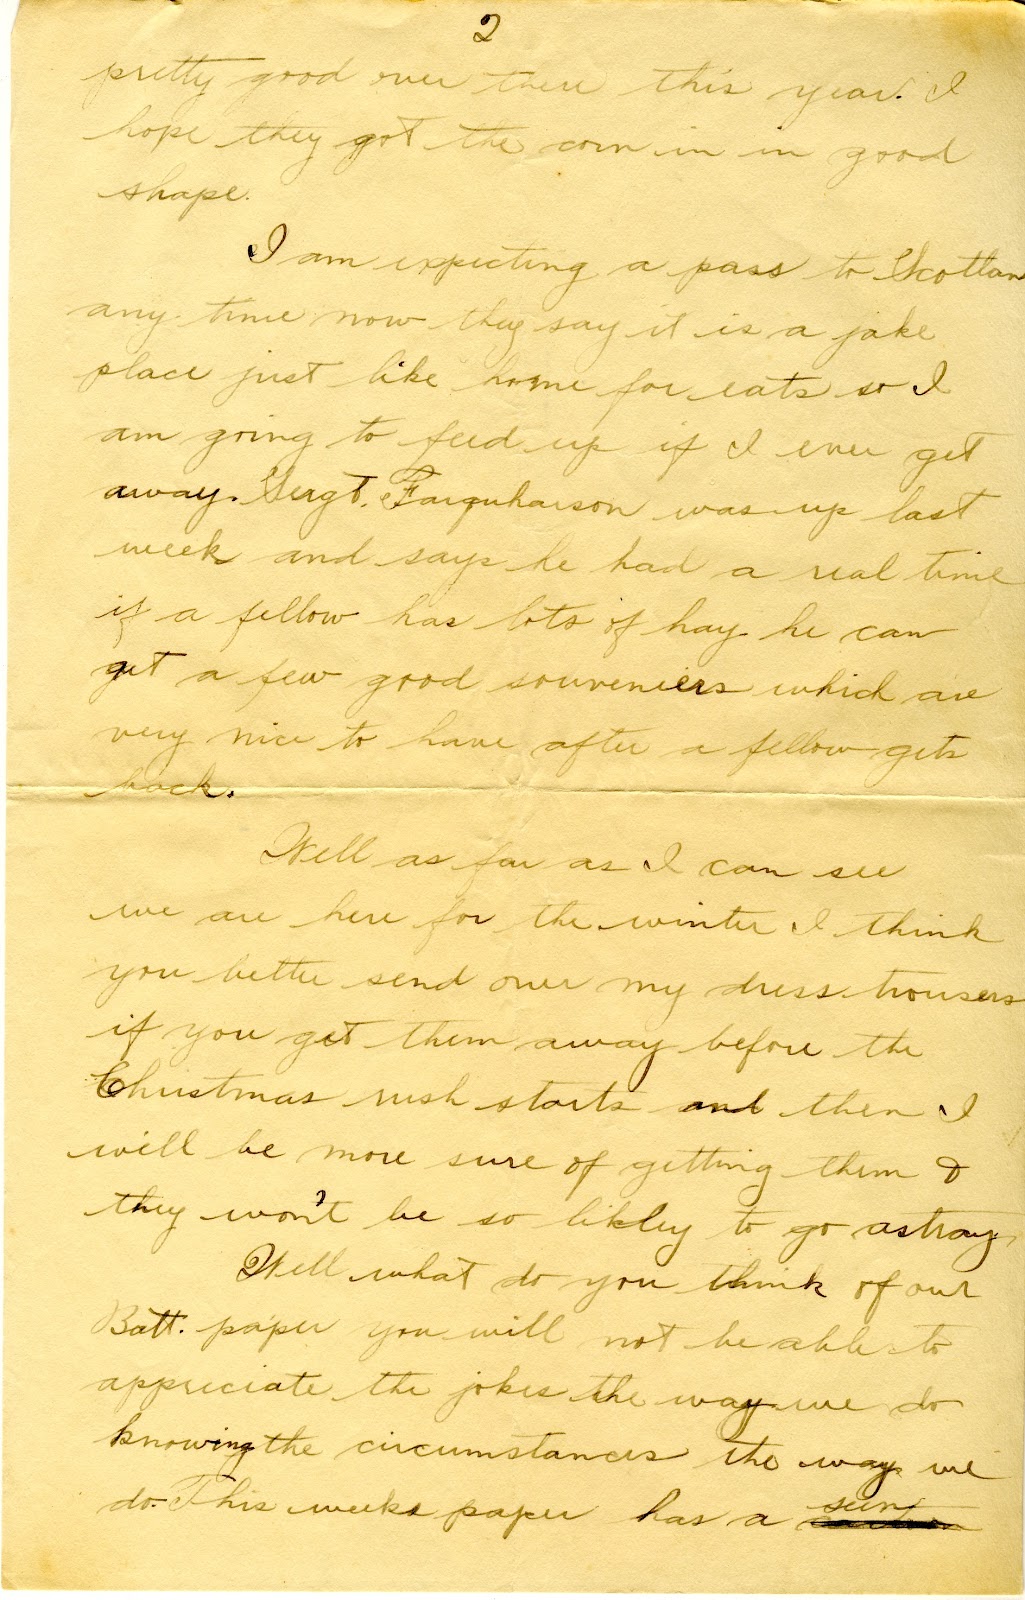 2
pretty good over there this year. I
hope they got the corn in in good
shape.
I am expecting a pass to Scotlan
any time now they say it is a jake
place just like home for eats so I
am going to feed up if I ever get
away. Sergt. Farquharson was up last
week and says he had a real time
if a fellow has lots of hay he can
get a few good souveniers which are
very nice to have after a fellow gets
back.
Well as far as I can see
we are here for the winter I think
you better send over my dress trousers
if you get them away before the
Christmas rush starts and then I
will be more sure of getting them &
they won't be so likley to go astray.
Well what do you think of our
Batt. paper you will not be able to
appreciate the jokes the way we do
knowing the circumstances the way we
do. This weeks paper has a